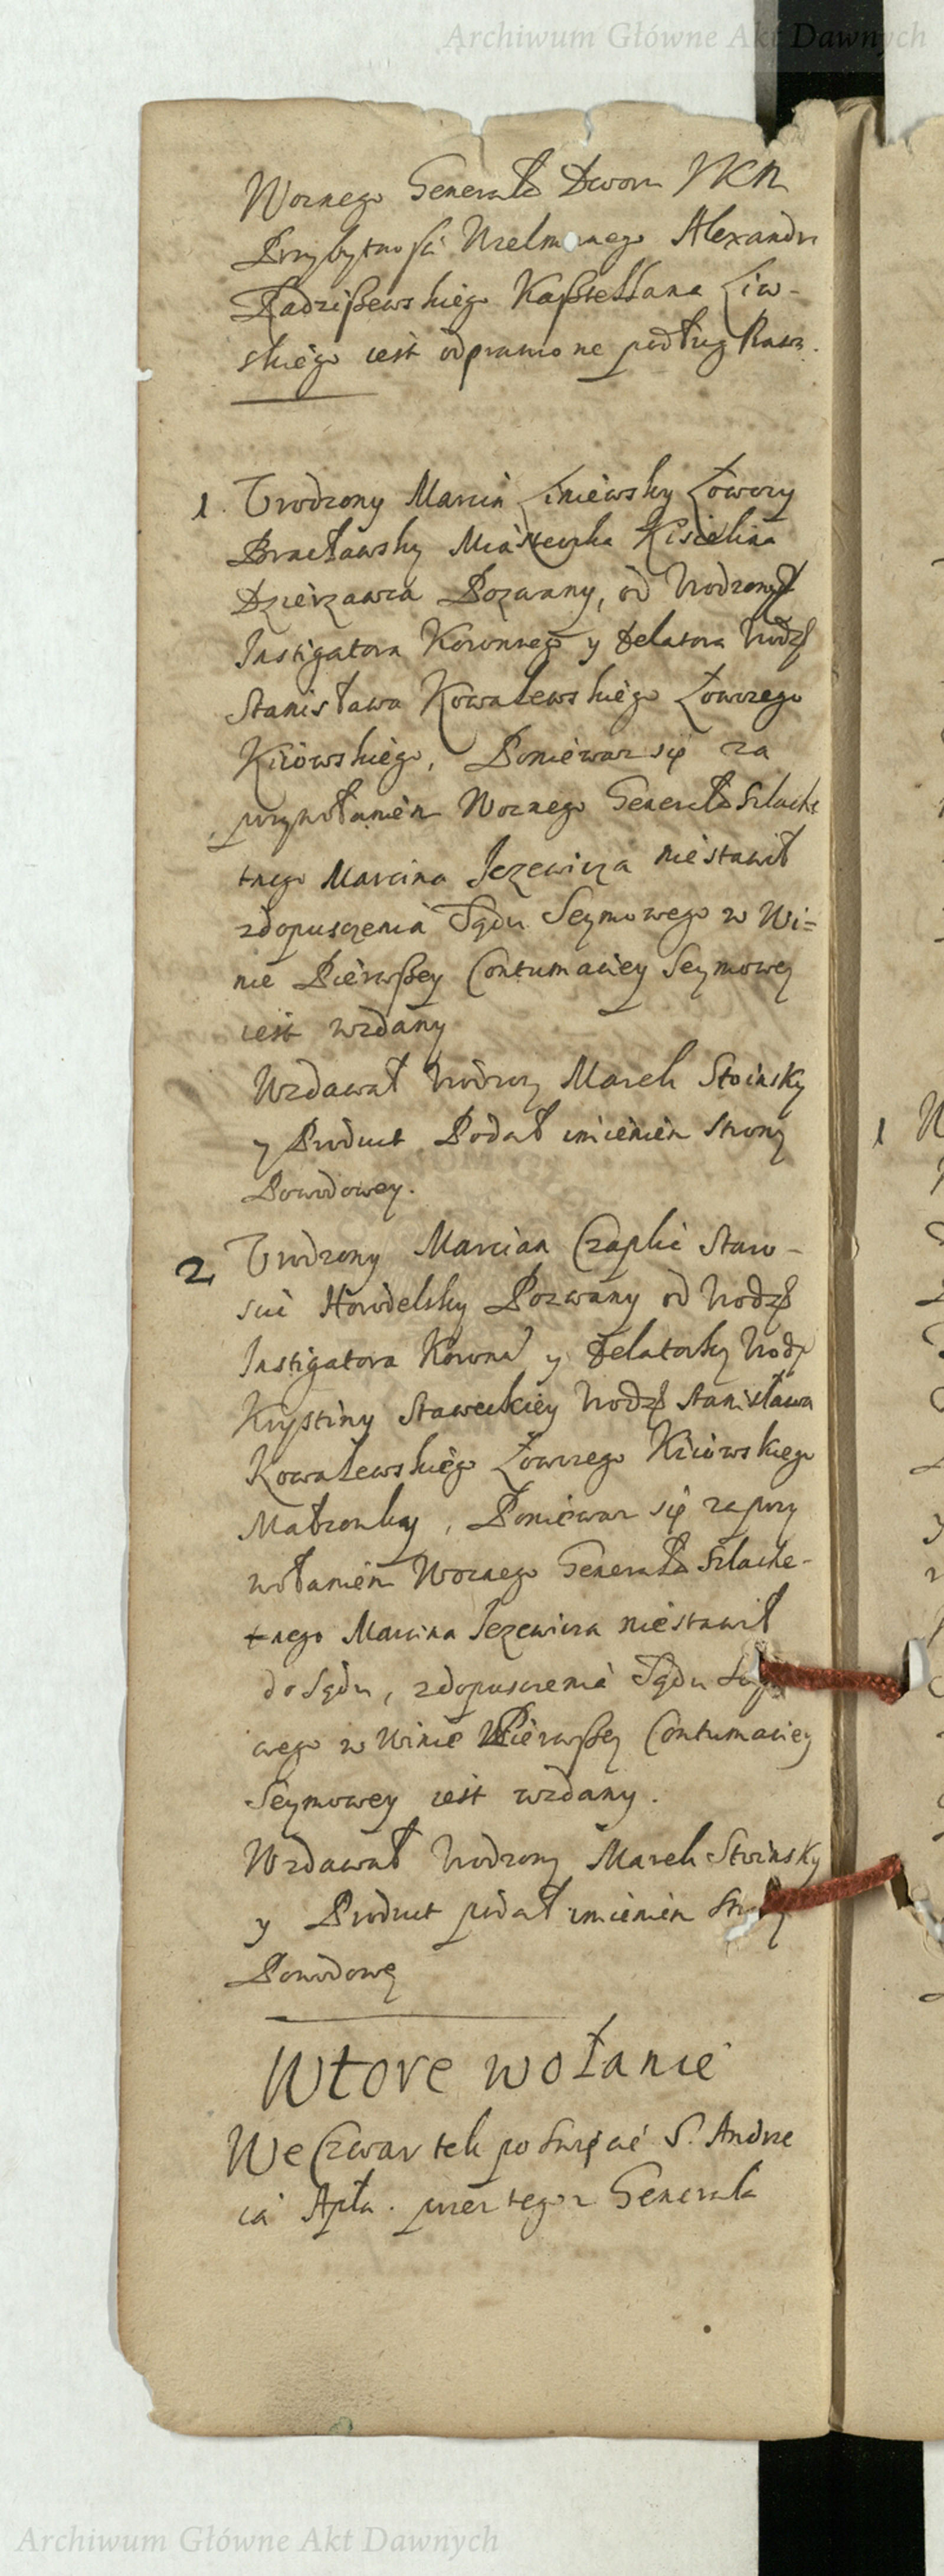 Archiwum Główne Akt Dawnych
Woznego Generała Dworu JKM
Przybytnosci Wielmo nego Alexandr
Radzißewskiego Kaßtellana Liw-
skiego iest odprawione podług Praw.
1. Urodzony Marcin Liniewsky Łowczy
Bracławsky Miasteczka Kisielina
Dzierzawca Pozwany, od Urodzone
Instigatora Koronnego y Delatora Urodz
Stanisława Kowalewskiego Łowczego
Kiiowskiego, Poniewaz się za
przywołaniem Woznego Generała Szlache
tnego Marcina Jezewicza niestawił
zdopusczenia Sądu Seymowego w Wi=
nie Pierwßey Contumaciey Seymowey
iest wzdany
Wzdawał Urodzony Marek Stoinsky
y Product Podał imieniem Strony
Powodowey.
2 Urodzony Marcian Czaplic Staro-
sta Horodelsky Pozwany od Urodz
Instigatora Koronn y Delatorky Urodz
Krystiny Staweckiey Urodz Stanisława
Kowalewskiego Łowczego Kiiowskiego
Małzonky, Poniewaz się zaprzy
wołaniem Woznego Generała Szlache-
tnego Marcina Jezewicza niestawił
do Sądu, zdopusczenia Sądu Sey
wego w Winie Pierwßey Contumaciey
Seymowey iest wzdany.
Wzdawał Urodzony Marek Stoinsky
y Product podał imieniem Strony
Powodowey
Wtore wołanie
We Czwartek po Swięcie S. Andrze
ia Apła. przez tegoz Generała
1
Archiwum Główne Akt Dawnych